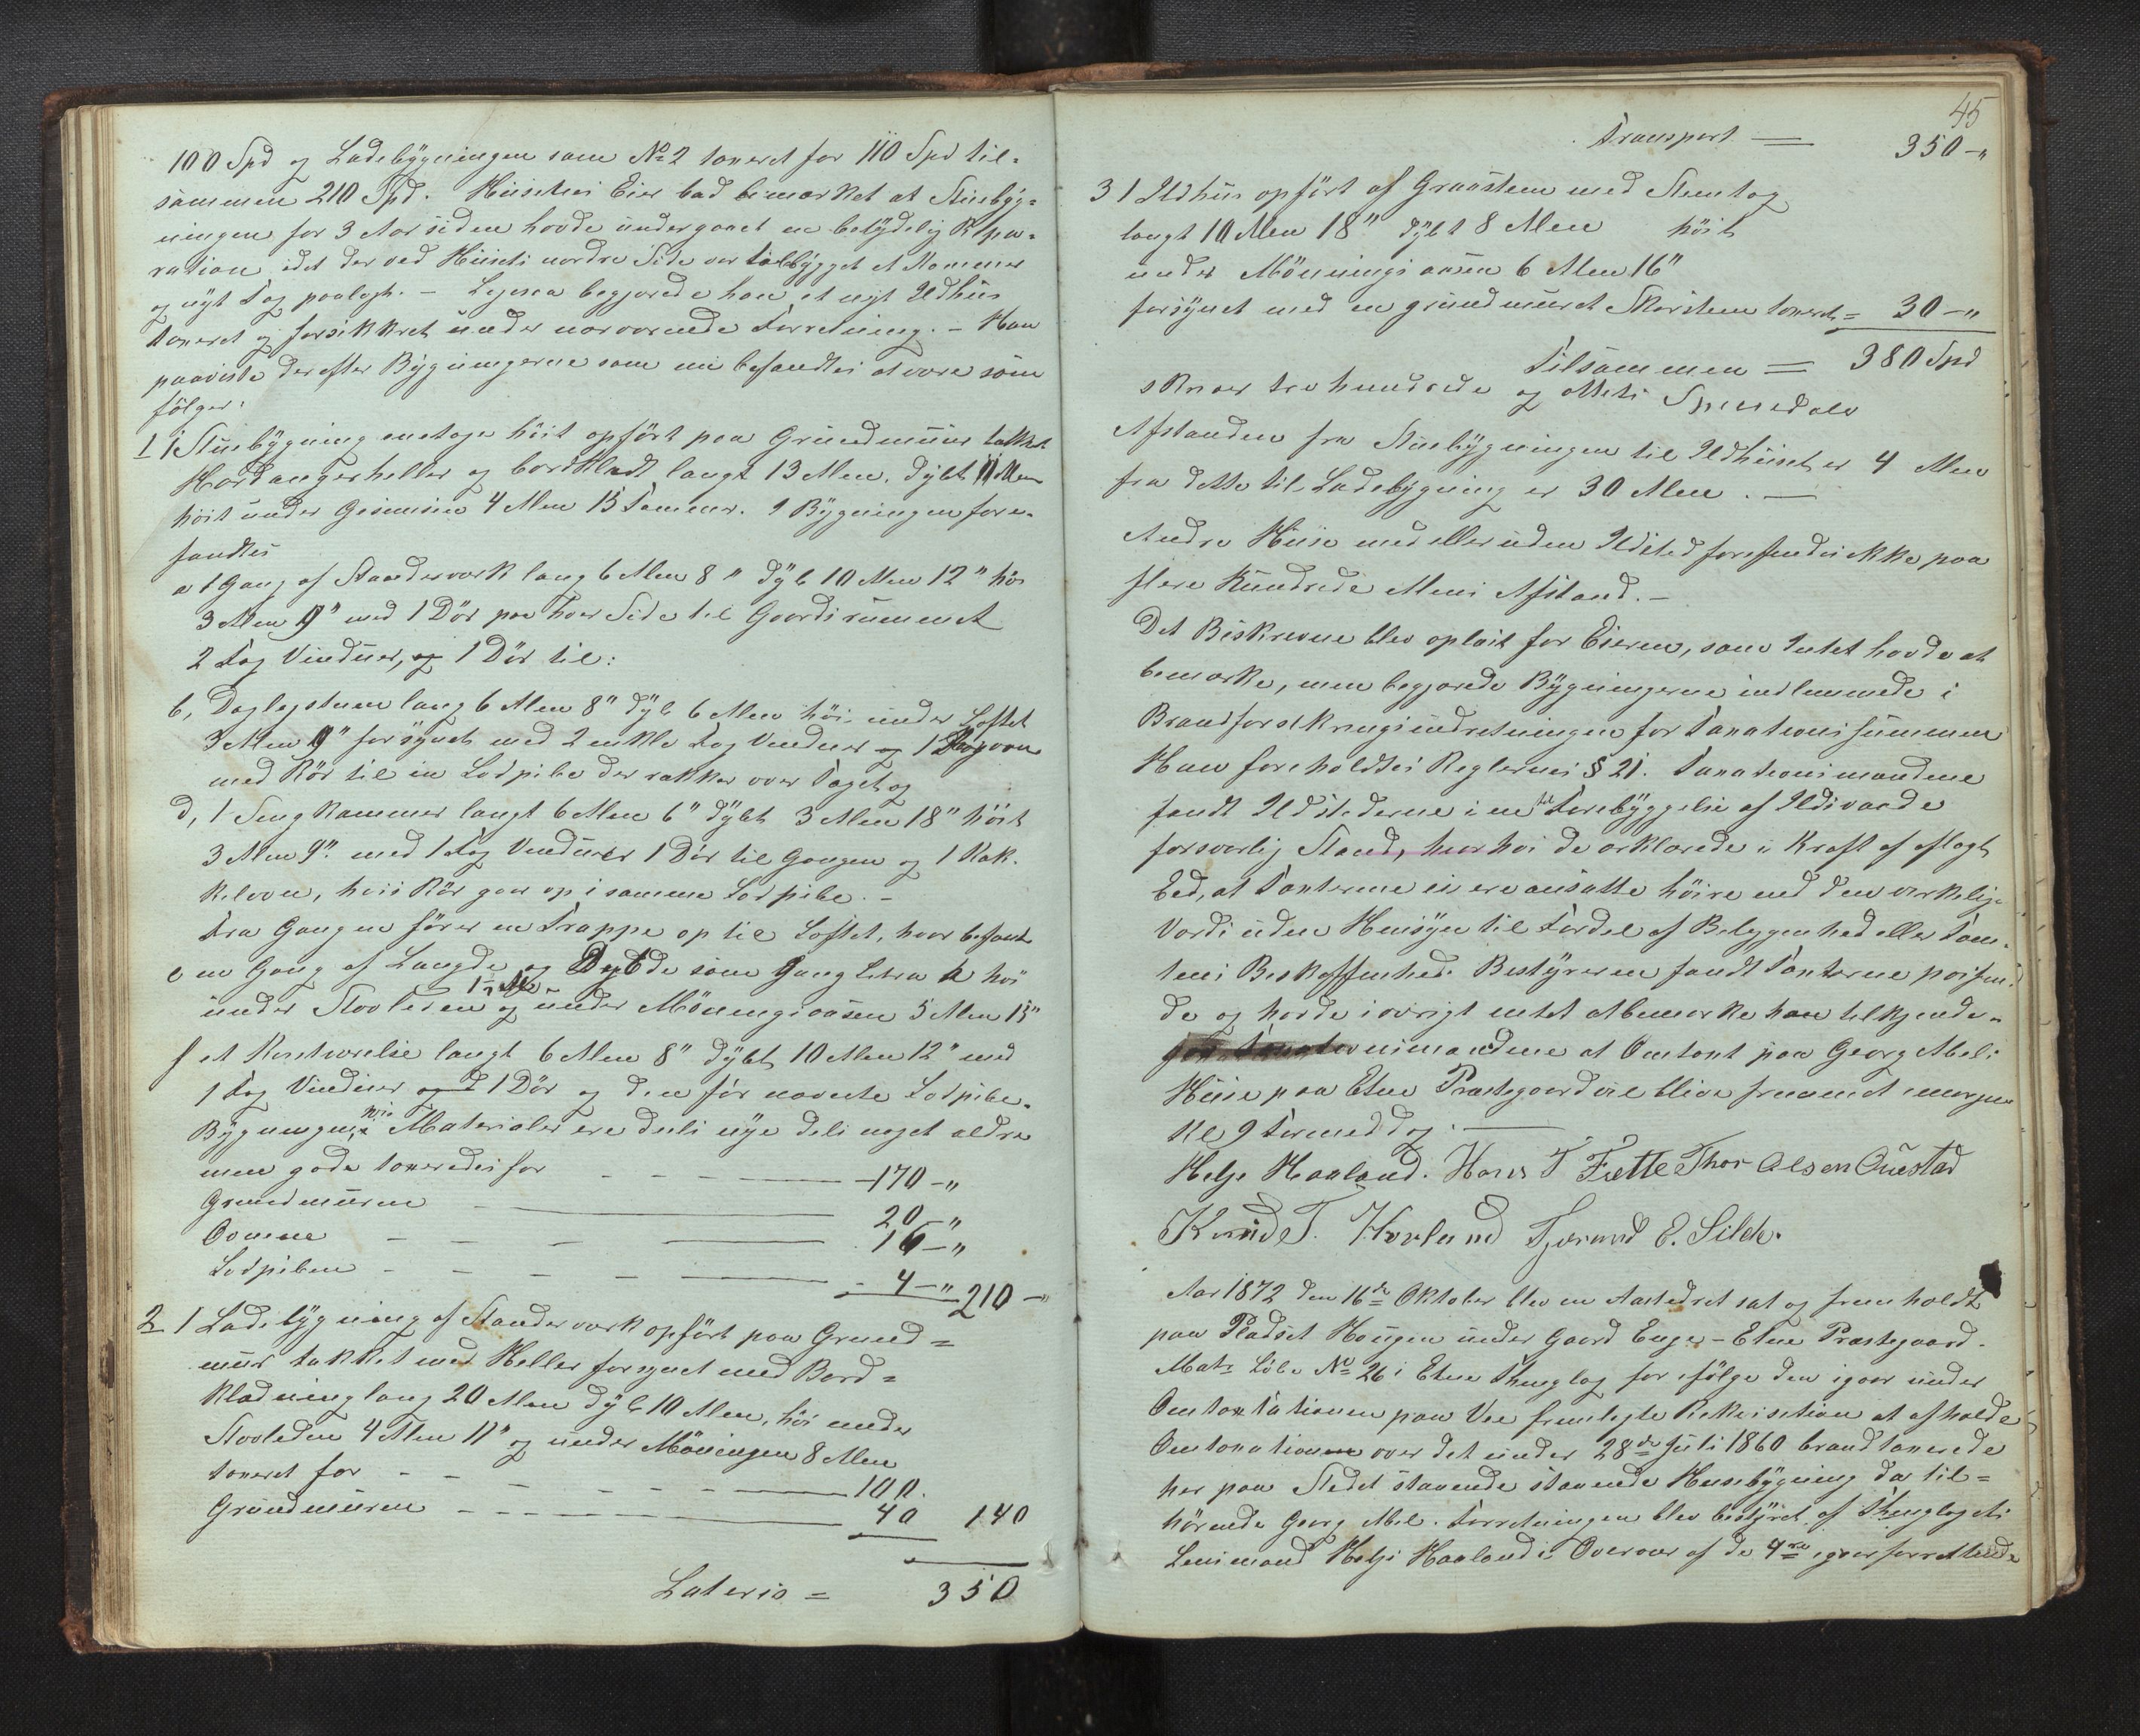 100 Spd og Ladebygningen som No 2 taxeret for 110 Spd til-
sammen 210 Spd. Husets Eier bad bemærket at Stuebyg-
ningen for 3 Aar siden havde undergaaet en betydelig Repa-
ration idet der ved Husets nordre Side var tilbygget et Kammer
og nyt Tag paalagt. - Ligesaa begjærede han et nyt Ildhus
taxeret og forsikkret under nærværende Forretning. - Han
paaviste derefter Bygningerne som nu befandtes at være som
følger:
1 1 Stuebygning enetages høit opført paa Grundmuur takket
Hardangerheller og bordklædt langt 13 Alen, dybt 11 Alen
høit under Gesimsen 4 Alen 15 Tommer. I Bygningen fore-
fandtes
a 1 Gang af Standerværk lang 6 Alen 8 " dyb 10 Alen 12 " høi
3 Alen 9" med 1 Dør paa hver Side til Gaardsrummet
2 Fag Vinduer, og 1 Dør til:
b, Daglystuen lang 6 Alen 8" dyb 6 Alen høi under Loftet
3 Alen 9" forsynet med 2 enkle Fag Vinduer og 1
med Rør til en Lødpibe der rækker over Taget og
d, 1 Sengkammer langt 6 Alen 6" dybt 3 Alen 18" høit
3 Alen 9". med 1 Fag Vinduer 1 Dør til Gangen og 1 Kak-
kelovn, hvis Rør gaar op i samme Lødpibe. -
Fra Gangen fører en Trappe op til Loftet, hvor befandt
e en Gang af Længde og Dybde som Gang Litra a høi
1 1/2 Al.
under Stavleien og under Mønningsaasen 5 Alen 15"
f et Koneværelse langt 6 Alen 8" dybt 10 Alen 12" med
1 Fag Vinduer og 1 Dør og den før nævnte Lødpibe.
Bygningen, hvis Materialer ere deels nye deels noget ældre
men gode taxeredes for - - - - 170 - "
Grundmuren - 20 - "
Ovnene - - - 16 - "
Lødpiben - - - - 4 - " 210 - "
2 1 Ladebygning af Standerværk opført paa Grund=
muur takket med Heller forsynet med Bord=
klædning lang 20 Alen dyb 10 Alen, høi under
Stavleden 4 Alen 11" og under Mønningen 8 Alen
taxeret for - - - - - - 100.
Grundmuren - - - - 40 140
Lateris = 350
45
Transport = 350 - "
3 1 Ildhus opført af Graasteen med Steentag
langt 10 Alen 18" dybt 8 Alen høit
under Mønningsaasen 6 Alen 16"
forsynet med en grundmuret Skorsteen taxert = 30 - "
Tilsammen = 380 Spd
skriver tre hundrede og otteti Speciedaler
Afstanden fra Stuebygningen til Ildhuset er 4 Alen
fra dette til Ladebygning er 30 Alen. -
Andre Huse med eller uden Ildsted forefindes ikke paa
flere Hundrede Alens Afstand. -
Det Beskrevne blev oplæst for Eieren, som Intet havde at
bemærke, men begjærede Bygningerne indlemmede i
Brandforsikringsindretningen for Taxationssummen
Han foreholdtes Reglernes § 21. Taxationsmændene
fandt Ildstederne i en til Forebyggelse af Ildsvaade
forsvarlig Stand, hvorhos de erklærede i Kraft af aflagt
Eed, at Taxterne ei ere ansatte høiere end den virkelige
Værdi uden Hensyn til Fordel af Beliggenhed eller Tom-
tens Beskaffenhed. Bestyreren fandt Taxterne passen-
de og havde iøvrigt intet at bemærke han tilkjende-
gav Taxationsmændene at Omtaxt paa Georg Abels
Huse paa Etne Præstegaard vil blive fremmet imorgen
Kl 9 Formiddag. -
Helje Haaland. Hans T Fætte Thor Olsen Østad
Knud T. Haaland Tjerand E. Silde.
Aar 1872 den 16de Oktober blev en Aastedsret sat og fremholdt
paa Pladset Haugen under Gaard Enge - Etne Præstegaard.
Matr Løbe No 26 i Etne Thinglag for ifølge den igaar under
Omtaxtationen paa Vee fremlagte Rekvisition at afholde
Omtaxationen over det under 28de Juli 1860 brandtaxerede
her paa Stedet staaende staaende Husebygning da til=
hørende Georg Abel. Forretningen blev bestyret af Thinglagets
Lensmand Helje Haaland i Overvær af de 4re igaar forrettende